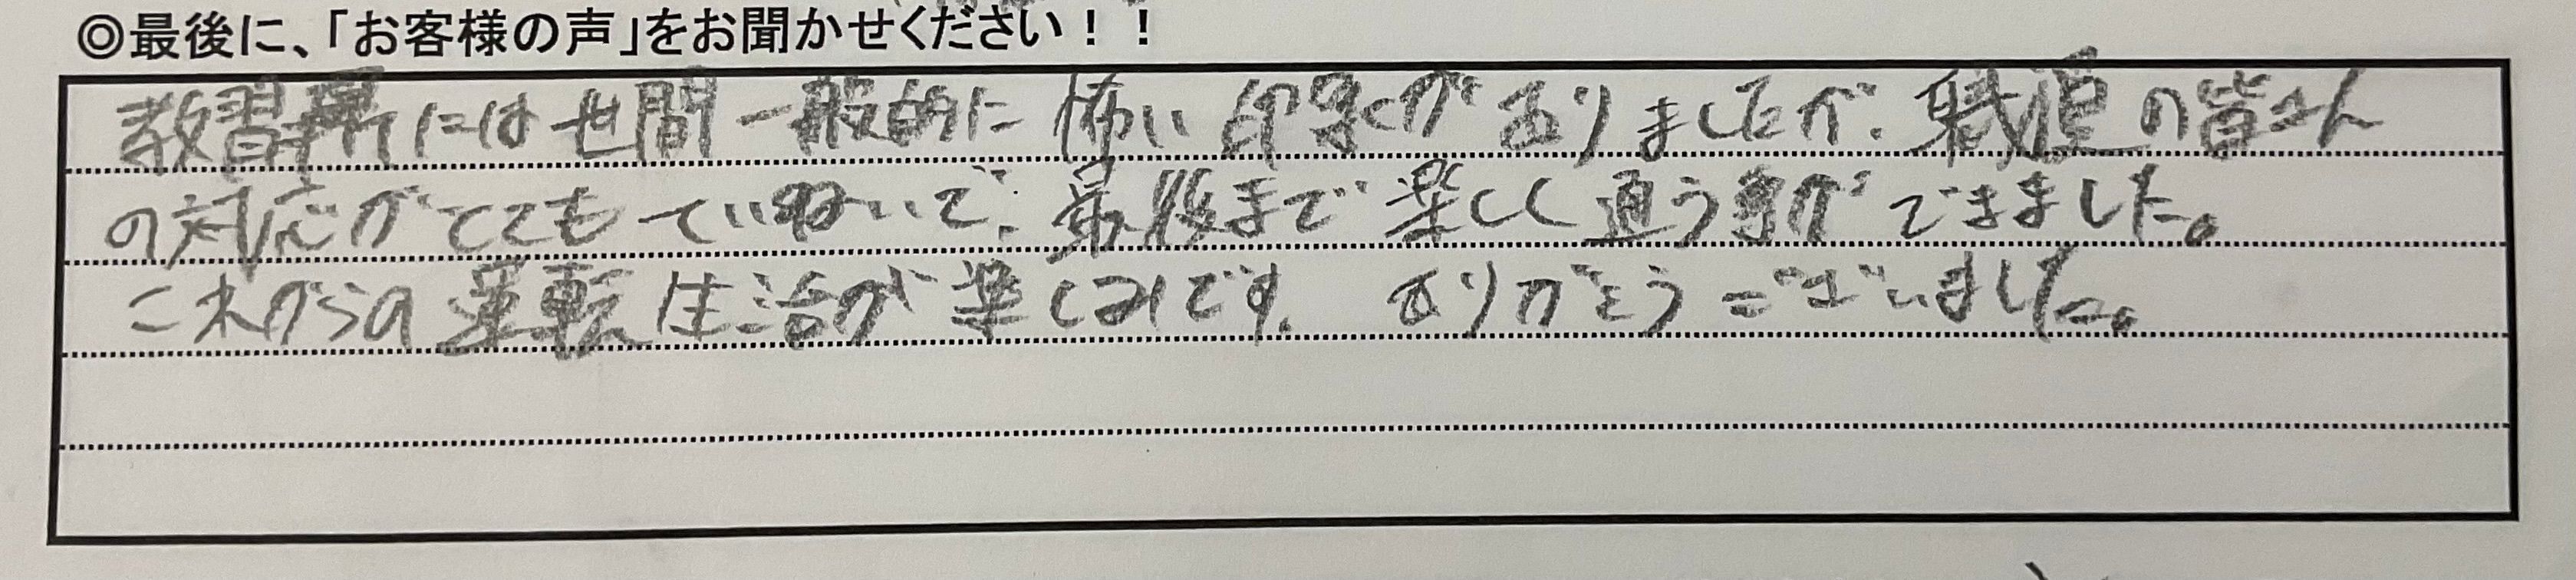 ◎最後に、「お客様の声」をお聞かせください！！
教習所には世間一般的に怖い印象がありましたが、職員の皆さん
の対応がとてもていねいで、最後まで楽しく通う事ができました。
これからの運転生活が楽しみです。ありがとうございました。